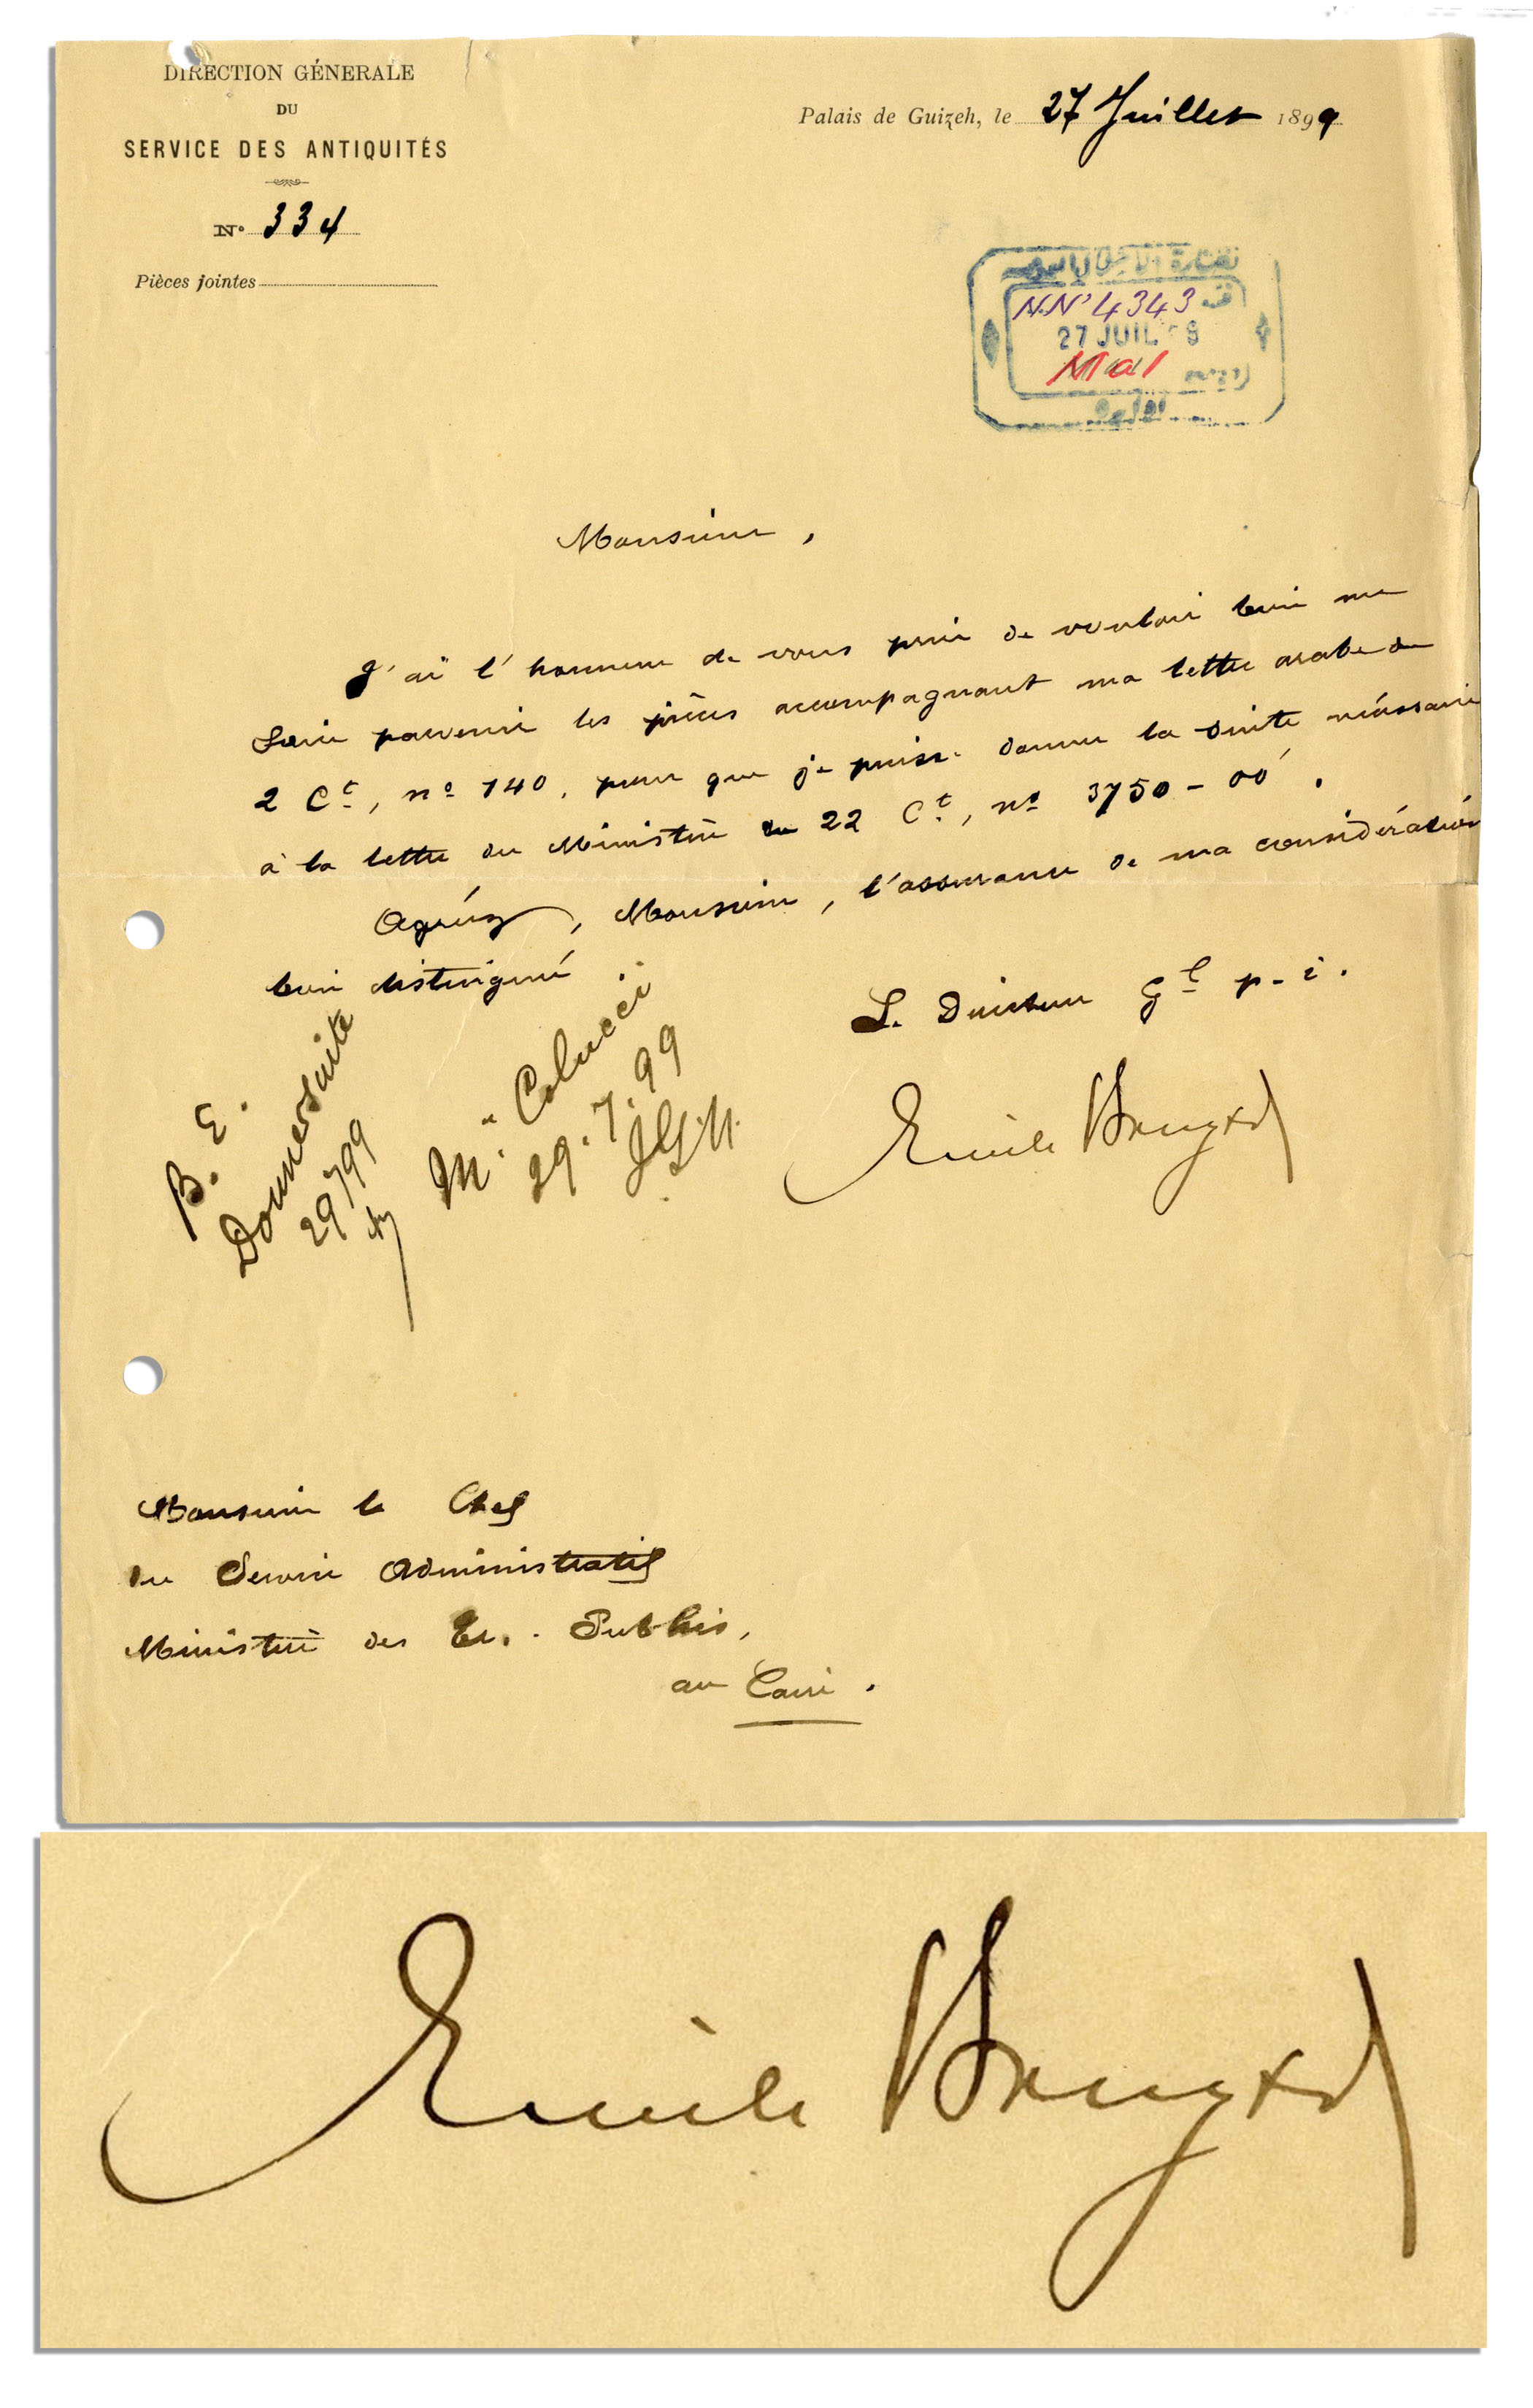 DIRECTION GÉNERALE
DU
SERVICE DES ANTIQUITÉS
N° 334
Pièces jointes
Palais de Guizeh, le 27 Juillet 1899
N.N° 4343
27 JUIL
Monsieur,
J'ai l'honneur de vous prier de vouloir bien me
faire parvenir les pièces accompagnant ma lettre arabe du
2 Ct, n° 140, pour que je puisse donner la suite nécessaire
à la lettre du Ministère du 22 Ct, n° 3750-00.
Agréez, Monsieur, l'assurance de ma considération
bien distinguée.
Le Directeur Gl p. i.
Emile Brugsch
B. E.
Donner suite
29 7 99
Mr Colucci
29.7.99
Monsieur le Chef
du Service Administratif
Ministère des Tr. Publics,
au Caire.
Emile Brugsch